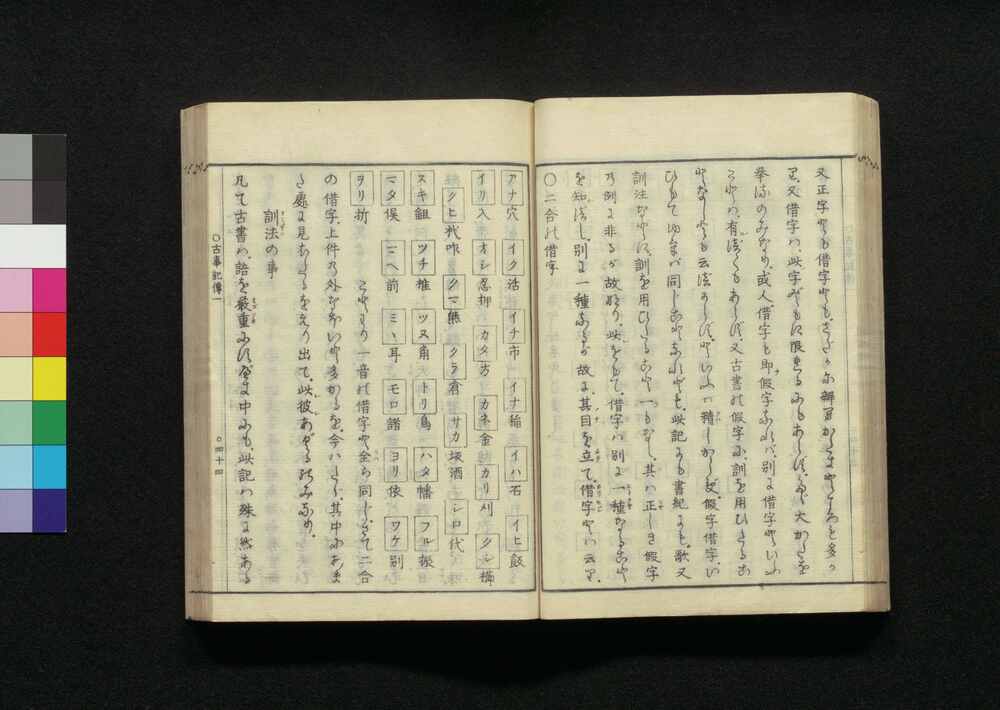 又正字とも借字とも、さだかに辨別がたきところも多か
り、又借字は、此字どもに限れるにもあらず、たゞ大かたを
擧るのみなり、或人、借字も即假字なれば、別に借字といふ
ことは、有べくもあらず、又古書の假字に、訓を用ひたるこ
となしとも云べからず、といふは精しからず、假字借字、い
ひもてゆけば同じことなれども、此記にも書紀にも、歌又
訓注などに、訓を用ひたること一もなし、其は正しき假字
の例に非るが故なり、此をもて、借字は別に一種なること
を知べし、別に一種なるが故に、其目を立て、借字とは云り、
○二合の借字
アナ穴 イク活 イチ市 イナ稲 イハ石 イヒ飯
イリ入 オシ忍押 カタ方 カネ金 カリ刈 クシ櫛
クヒ杙咋 クマ熊 クラ倉 サカ坂酒 シロ代
スキ鉏 ツチ椎 ツヌ角 トリ鳥 ハタ幡 フル振
マタ俣 マヘ前 ミヽ耳 モロ諸 ヨリ依 ワケ別
ヲリ折 ことわり一音の借字と全ら同じ、さて二合
の借字、上件の外なほいと多かるを、今はたゞ、其中にあま
た處に見えたるをえり出て、此彼あぐるのみなり、
訓法の事
凡て古書は、語を嚴重にすべき中にも、此記は殊に然ある
○古事記傳一 ○四十四